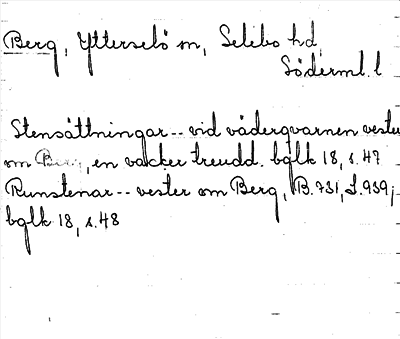 Berg, Ytterselö sn, Selebo hd,
Söderml. l
Stensättningar -- vid väderqvarnen vester
om Berg, en vacker treudd. bqlk 18, s. 47
Runstenar -- vester om Berg, B. 731, L. 939;
bqlk 18, s. 48